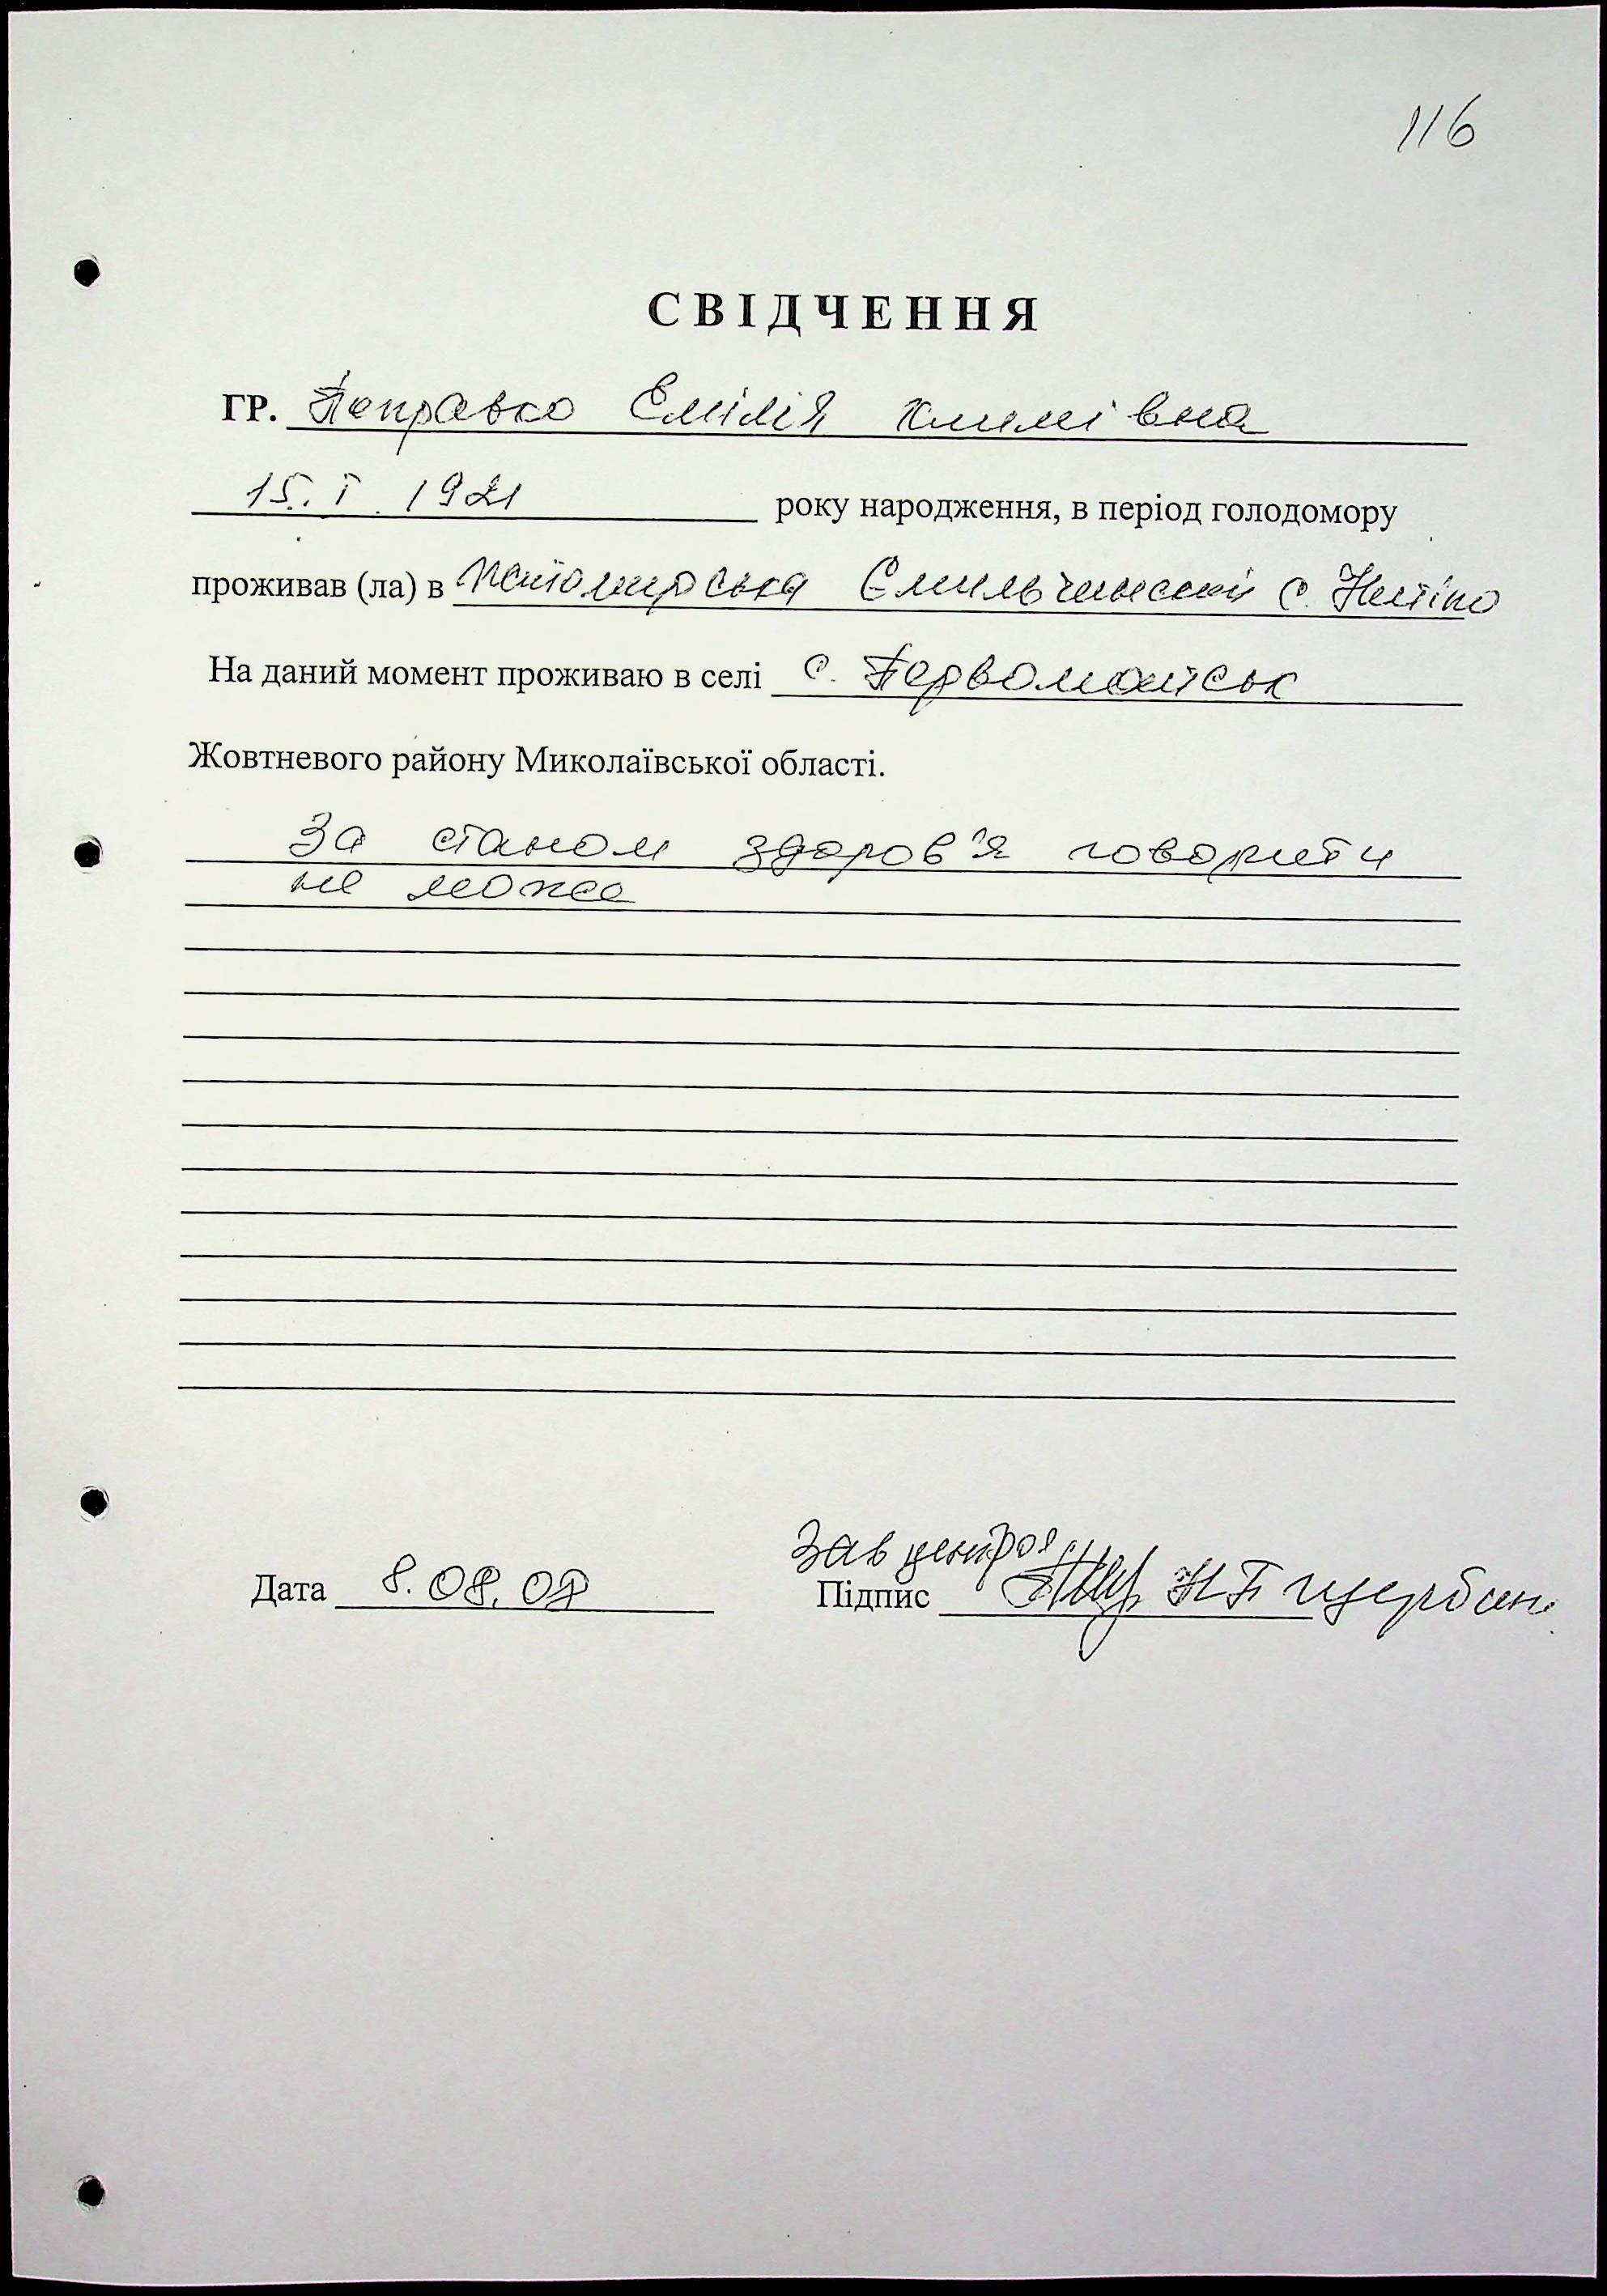 116
СВІДЧЕННЯ
ГР. Поправко Емілія Климівна
15. I. 1921 року народження, в період голодомору
проживав (ла) в Житомирська Ємильчинский с.
На даний момент проживаю в селі с. Первомайськ
Жовтневого району Миколаївської області.
За станом здоров'я говорити
не може
Зав центром
Дата 8.08.08 Підпис Н П Щербина